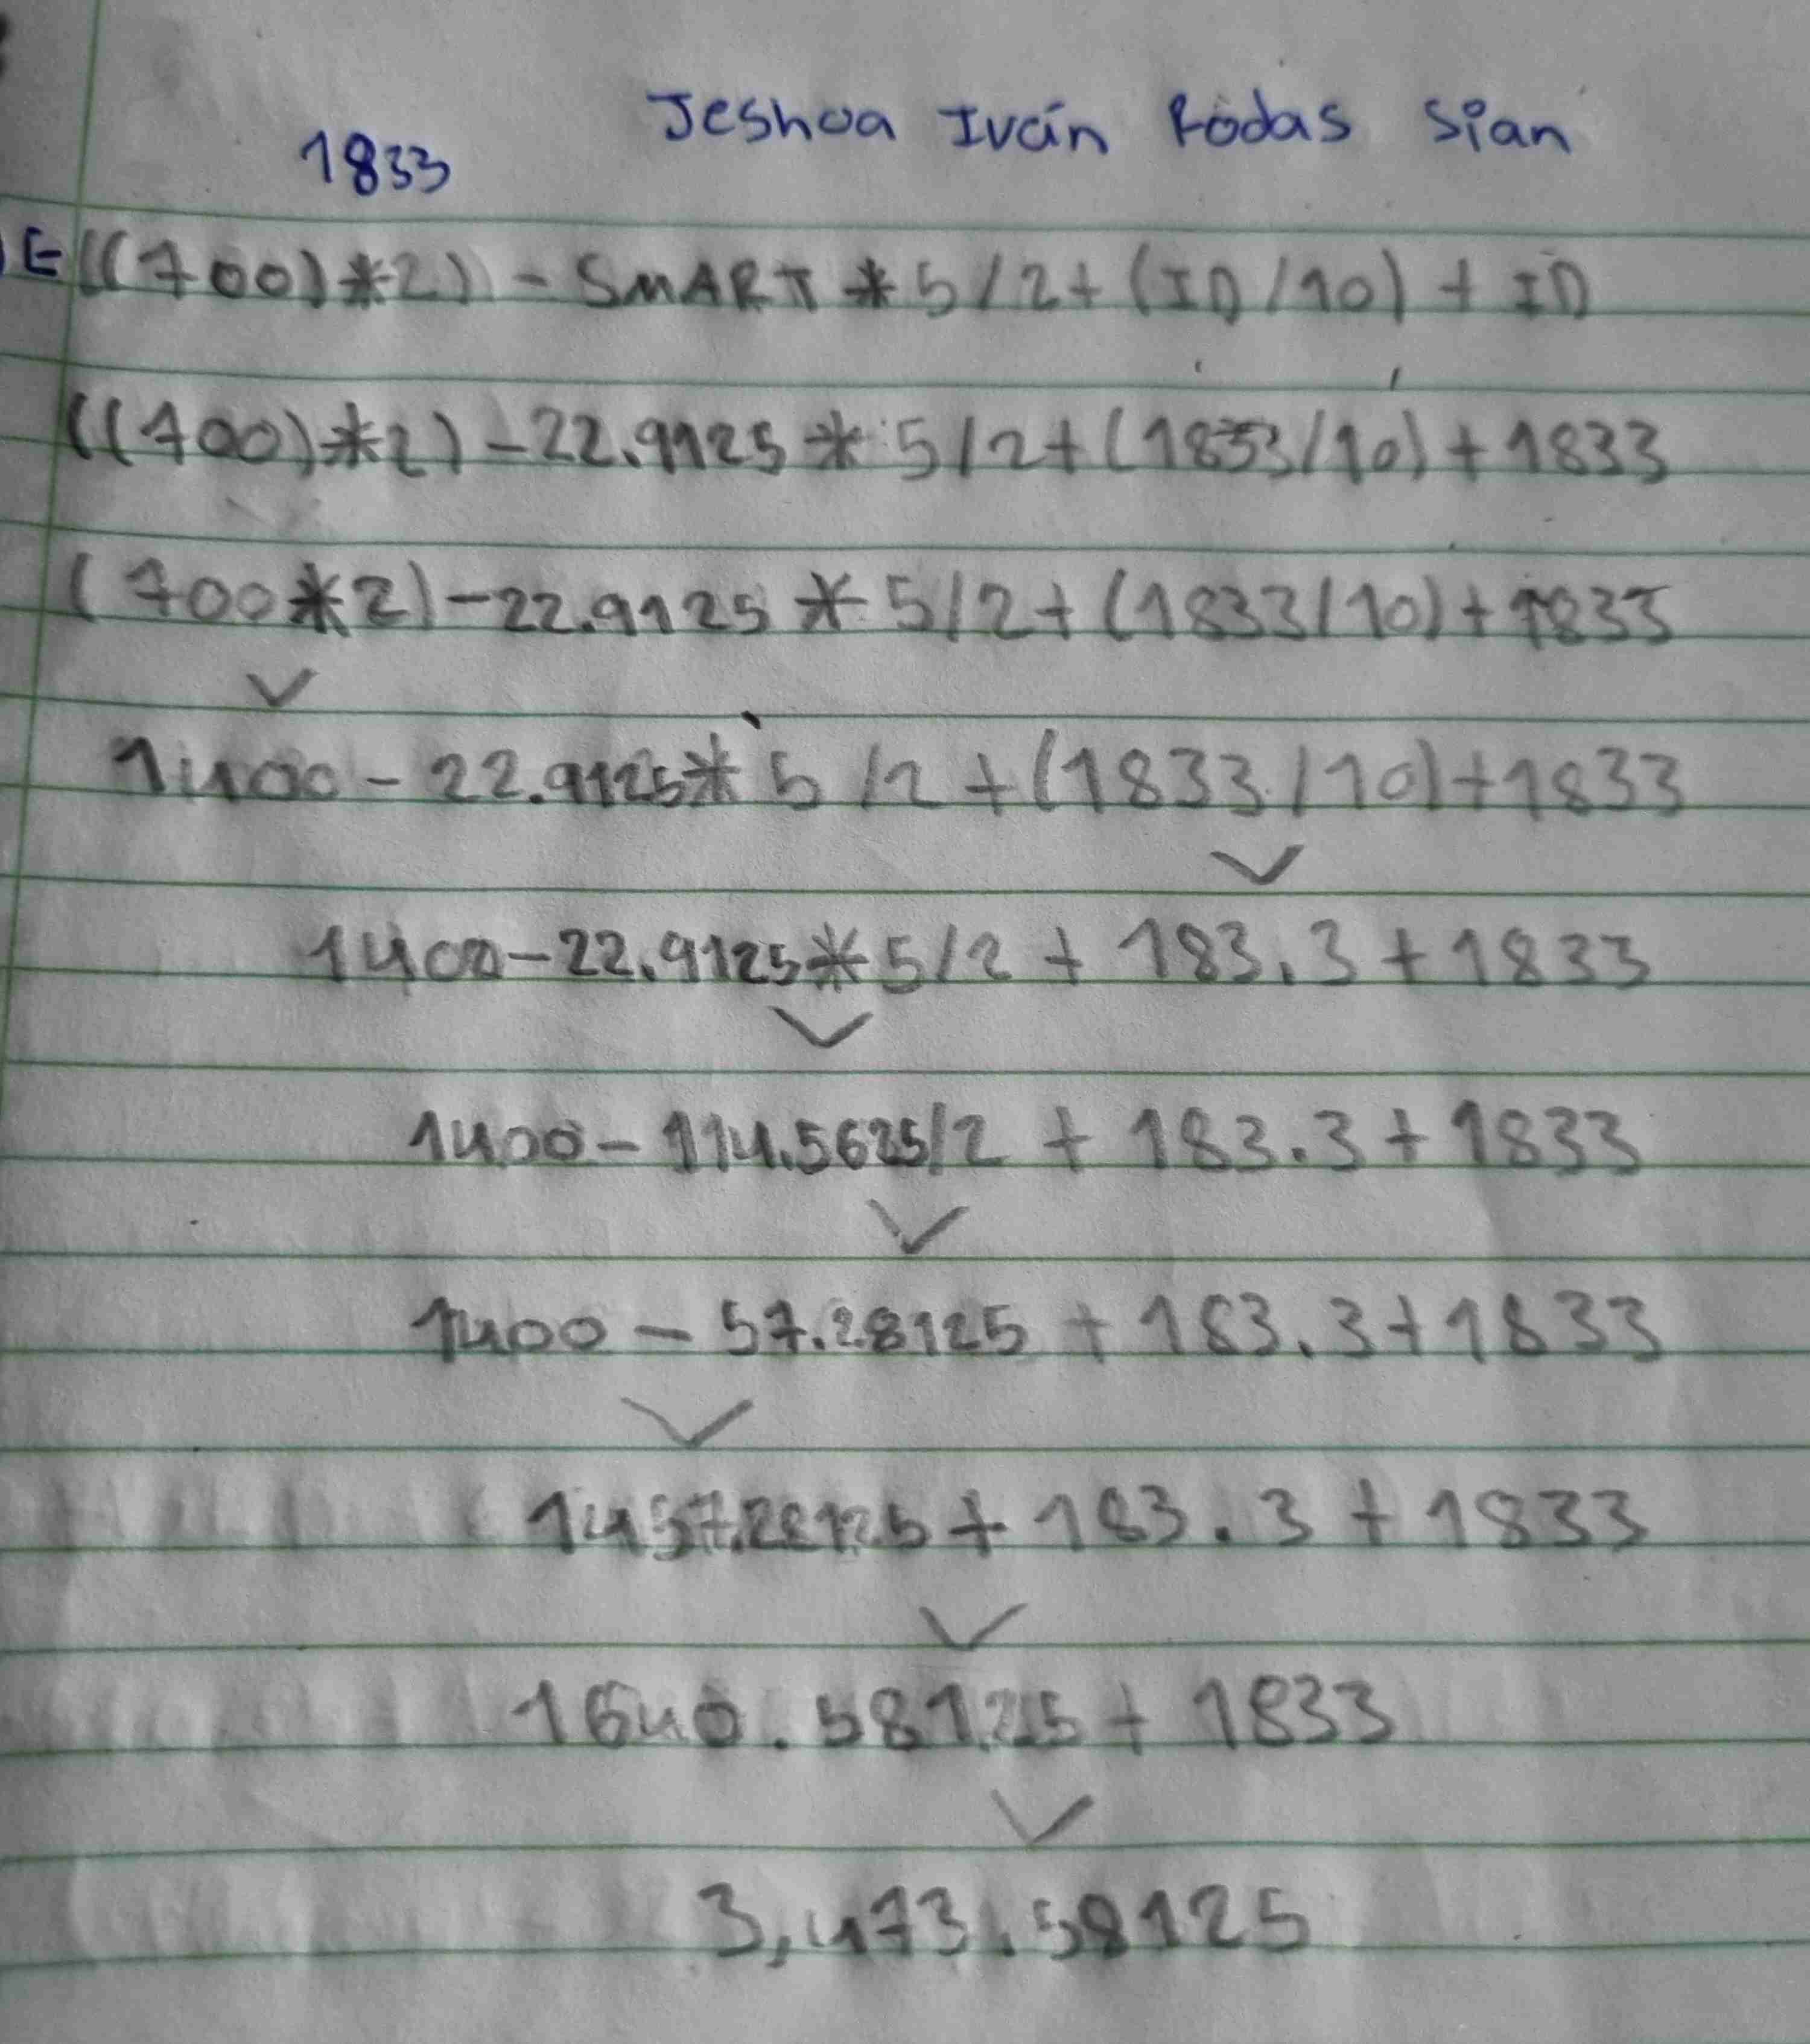 Jeshua Iván Rodas Sian
1833
E((700)*2)) - SMART * 5/2+(ID/10) + ID
((700)*2) -22.9125 * 5/2+(1833/10)+1833
(700*2)-22.9125 * 5/2+(1833/10)+1833
1400 - 22.9125* 5/2 +(1833/10)+1833
1400-22.9125*5/2 + 183.3+1833
1400 - 114.5625/2 + 183.3+1833
1400 - 57.28125 + 183.3+1833
1457.28125 + 183.3 + 1833
1640.58125 + 1833
3,473.58125